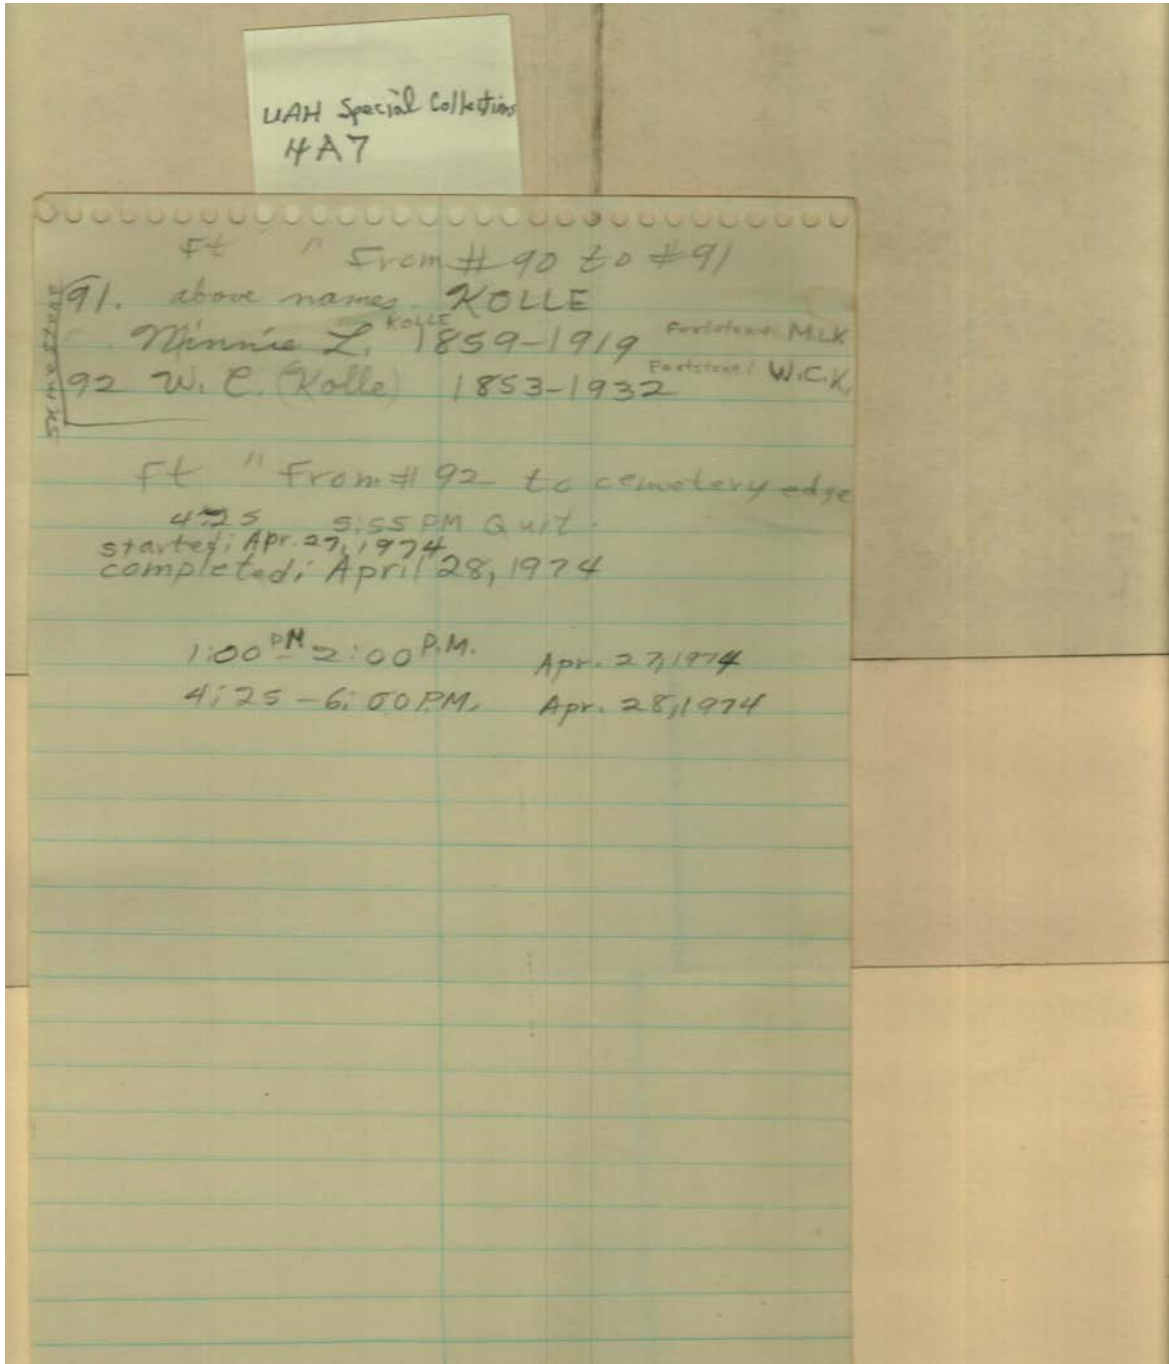 UAH Special Collections
4A7
Ft " From # 90 to #91
same stone
91. above names. KOLLE
Minnie L. KOLLE 1859-1919 Footstone: M.L.K
92 W. C. (Kolle) 1853-1932 Footstone: W.C.K.
Ft " From # 92 to cemetery edge
4:25 5:55 PM Quit.
started; Apr. 27, 1974
completed; April 28, 1974
1:00 PM 2:00 P.M. Apr. 27, 1974
4:25 - 6:00 P.M. Apr. 28, 1974